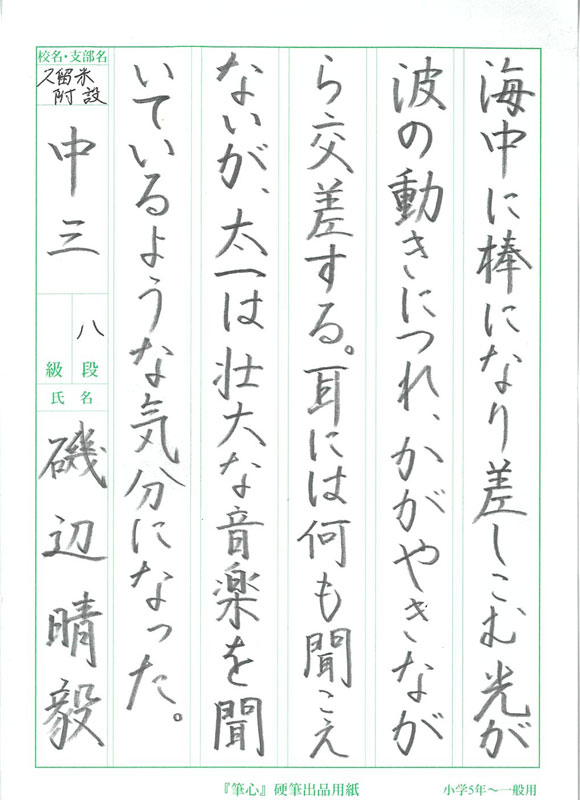 海中に棒になり差しこむ光が
波の動きにつれ、かがやきなが
ら交差する。耳には何も聞こえ
ないが、太一は壮大な音楽を聞
いているような気分になった。
校名・支部名
久留米
附設
中三
八
段
級
氏名
磯辺晴毅
『筆心』硬筆出品用紙
小学5年〜一般用